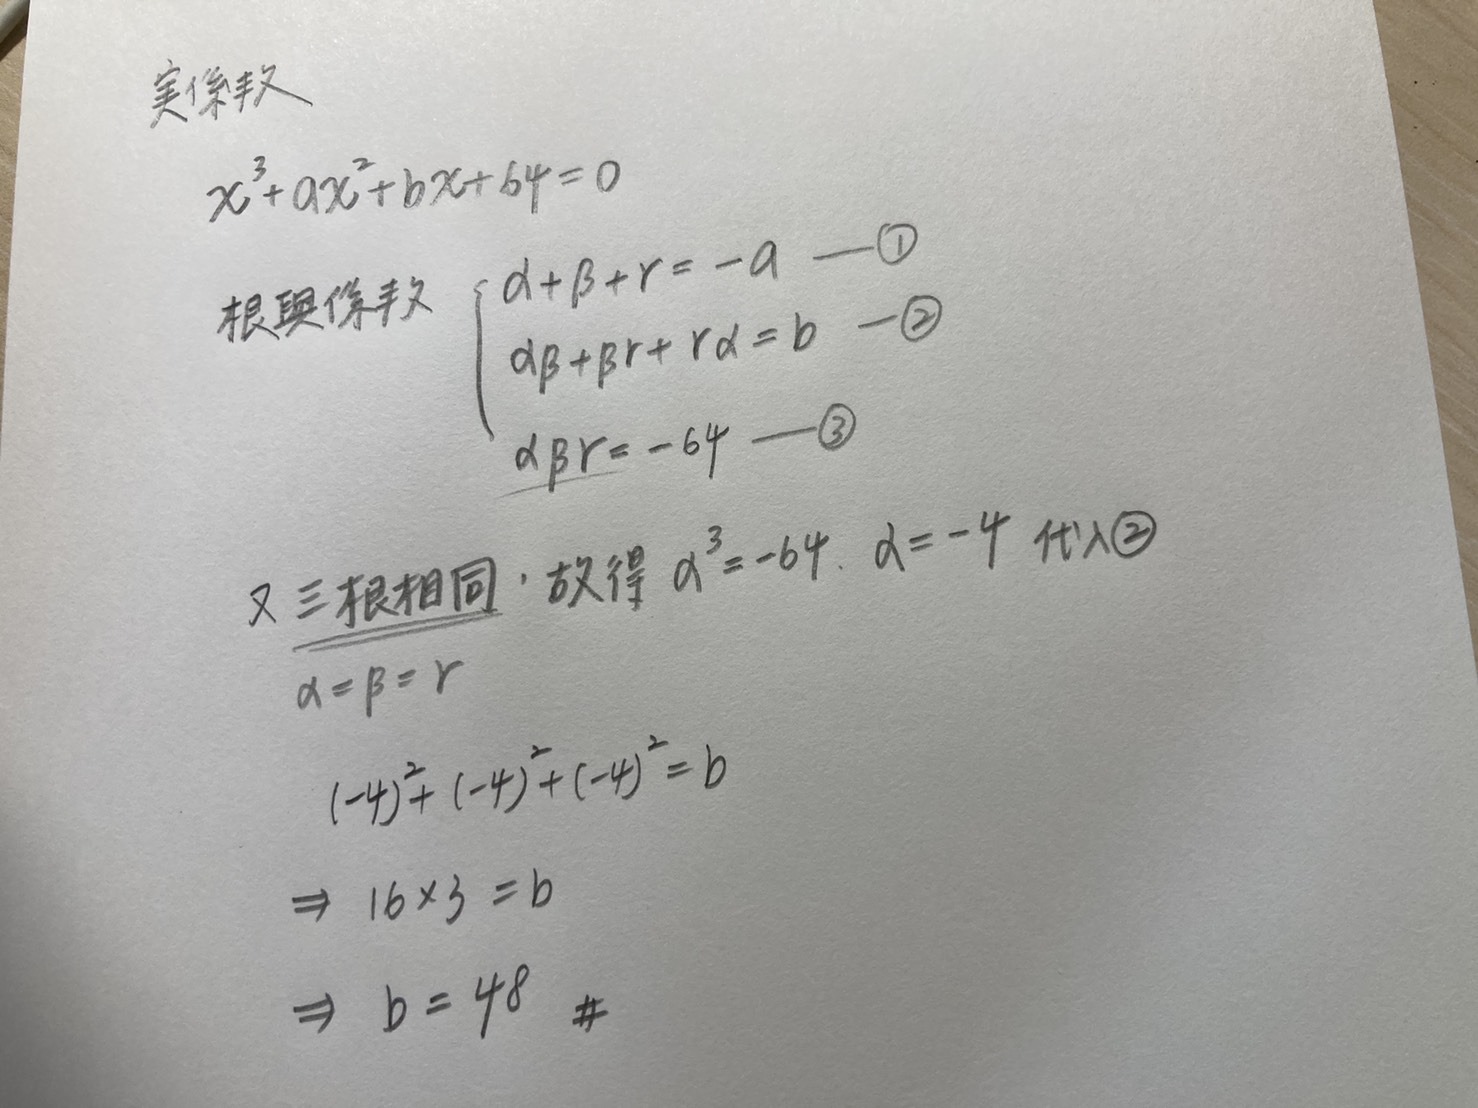 実係数
x³+ax²+bx+64=0
根與係数 { α+β+r=-a —①
αβ+βr+rα=b —②
αβr=-64 —③
又三根相同,故得 α³=-64. α=-4 代入②
α=β=r
(-4)²+(-4)²+(-4)²=b
⇒ 16×3=b
⇒ b=48 #